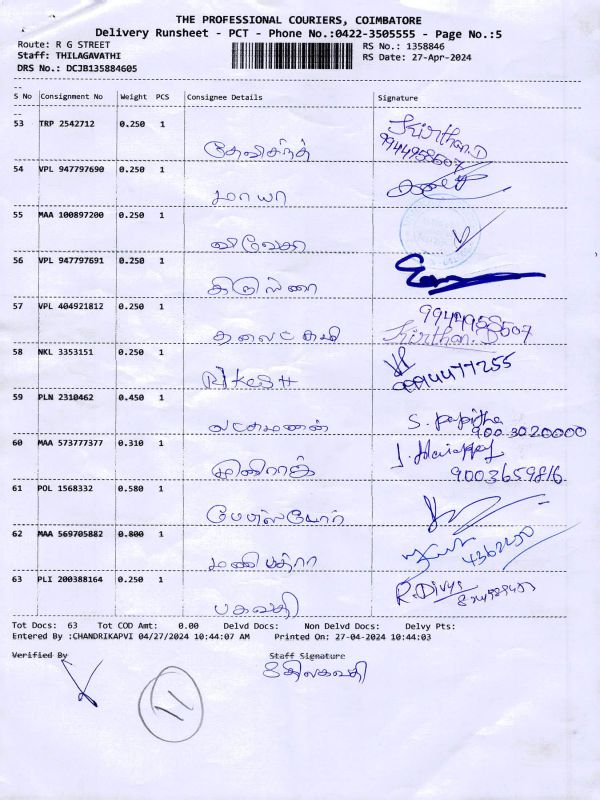 THE PROFESSIONAL COURIERS, COIMBATORE
Delivery Runsheet - PCT - Phone No.:0422-3505555 - Page No.:5
Route: R G STREET RS No.: 1358846
Staff: THILAGAVATHI RS Date: 27-Apr-2024
DRS No.: DCJB135884605
S No Consignment No Weight PCS Consignee Details Signature
53 TRP 2542712 0.250 1 Kirthan.D
9944958507
54 VPL 947797690 0.250 1
மாயா
55 MAA 100897200 0.250 1
விவேகா
56 VPL 947797691 0.250 1
57 VPL 404921812 0.250 1 9944958507
Kirthan.D
58 NKL 3353151 0.250 1
RIKESH
59 PLN 2310462 0.450 1
லட்சுமணன் 9003020000
60 MAA 573777377 0.310 1
9003659816
61 POL 1568332 0.580 1
62 MAA 569705882 0.800 1
மணிபத்ரா
63 PLI 200388164 0.250 1 R.Divya
பகவதி
Tot Docs: 63 Tot COD Amt: 0.00 Delvd Docs: Non Delvd Docs: Delvy Pts:
Entered By :CHANDRIKAPVI 04/27/2024 10:44:07 AM Printed On: 27-04-2024 10:44:03
Verified By Staff Signature
திலகவதி
11